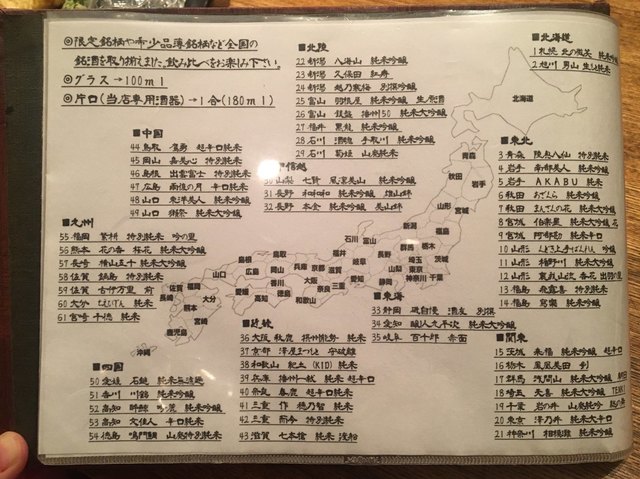 ◎限定銘柄や希少品薄銘柄など全国の
銘酒を取り揃えました。飲み比べをお楽しみ下さい。
◎グラス→100ml
◎片口(当店専用酒器)→1合(180ml)
■北海道
1 札幌 北の微笑 純米吟醸
2 旭川 男山 生もと純米
■東北
3 青森 陸奥八仙 特別純米
4 岩手 南部美人 純米吟醸
5 岩手 AKABU 純米
6 秋田 純米吟醸
7 秋田 まんさくの花 純米大吟醸
8 宮城 伯楽星 純米大吟醸
9 宮城 阿部勘 純米辛口
10 山形 くどき上手ばくれん 吟醸
11 山形 楯野川 純米大吟醸
12 山形 香花 出羽の里
13 福島 飛露喜 特別純米
14 福島 寫樂 純米吟醸
■関東
15 茨城 来福 純米吟醸 超辛口
16 栃木 鳳凰美田
17 群馬 浅間山 純米大吟醸
18 埼玉 天喜 純米大吟醸
19 千葉 岩の井 山廃純吟
20 東京 澤乃井 純米大辛口
21 神奈川 相模灘 純米吟醸
■北陸
22 新潟 八海山 純米吟醸
23 新潟 久保田 紅寿
24 新潟 越乃寒梅 別撰吟醸
25 富山 羽根屋 純米吟醸 生原酒
26 富山 銀盤 播州50 純米大吟醸
27 福井 黒龍 純米吟醸
28 石川 手取川 純米吟醸
29 石川 菊姫 山廃純米
信越
30 山梨 七賢 風凛美山 純米吟醸
31 長野 和和和 純米吟醸
32 長野 本金 純米吟醸 美山錦
■東海
33 静岡 磯自慢 別撰
34 愛知 醸し人九平次 純米大吟醸
35 岐阜 百十郎 赤面
■近畿
36 大阪 秋鹿 摂州能勢 純米
37 京都 澤屋まつもと 守破離
38 和歌山 紀土(KID) 純米
39 兵庫 播州一献 純米 超辛口
40 奈良 春鹿 超辛口純米
41 三重 作 穂乃智 純米
42 三重 而今 特別純米
43 滋賀 七本槍 純米
■中国
44 鳥取 鷹勇 超辛口純米
45 岡山 嘉美心 特別純米
46 島根 出雲富士 特別純米
47 広島 雨後の月 辛口純米
48 山口 東洋美人 純米吟醸
49 山口 獺祭 純米大吟醸
■四国
50 愛媛 石鎚 純米無濾過
51 香川 川鶴 純米吟醸
52 高知 酔鯨 純米吟醸
53 高知 文佳人 辛口純米
54 徳島 鳴門鯛 山廃特別純米
■九州
55 福岡 繁桝 特別純米 吟の里
56 熊本 花の香 桜花 純米大吟醸
57 長崎 横山五十 純米大吟醸
58 佐賀 鍋島 特別純米
59 佐賀 古伊万里 前
60 大分 ちえびじん 純米
61 宮崎 千徳 純米
北海道
青森
秋田
岩手
山形
宮城
新潟
福島
石川
富山
群馬
栃木
福井
長野
埼玉
茨城
岐阜
山梨
東京
神奈川
千葉
静岡
愛知
滋賀
京都
三重
奈良
大阪
和歌山
兵庫
鳥取
岡山
島根
広島
山口
香川
徳島
愛媛
高知
福岡
佐賀
長崎
大分
熊本
宮崎
鹿児島
沖縄